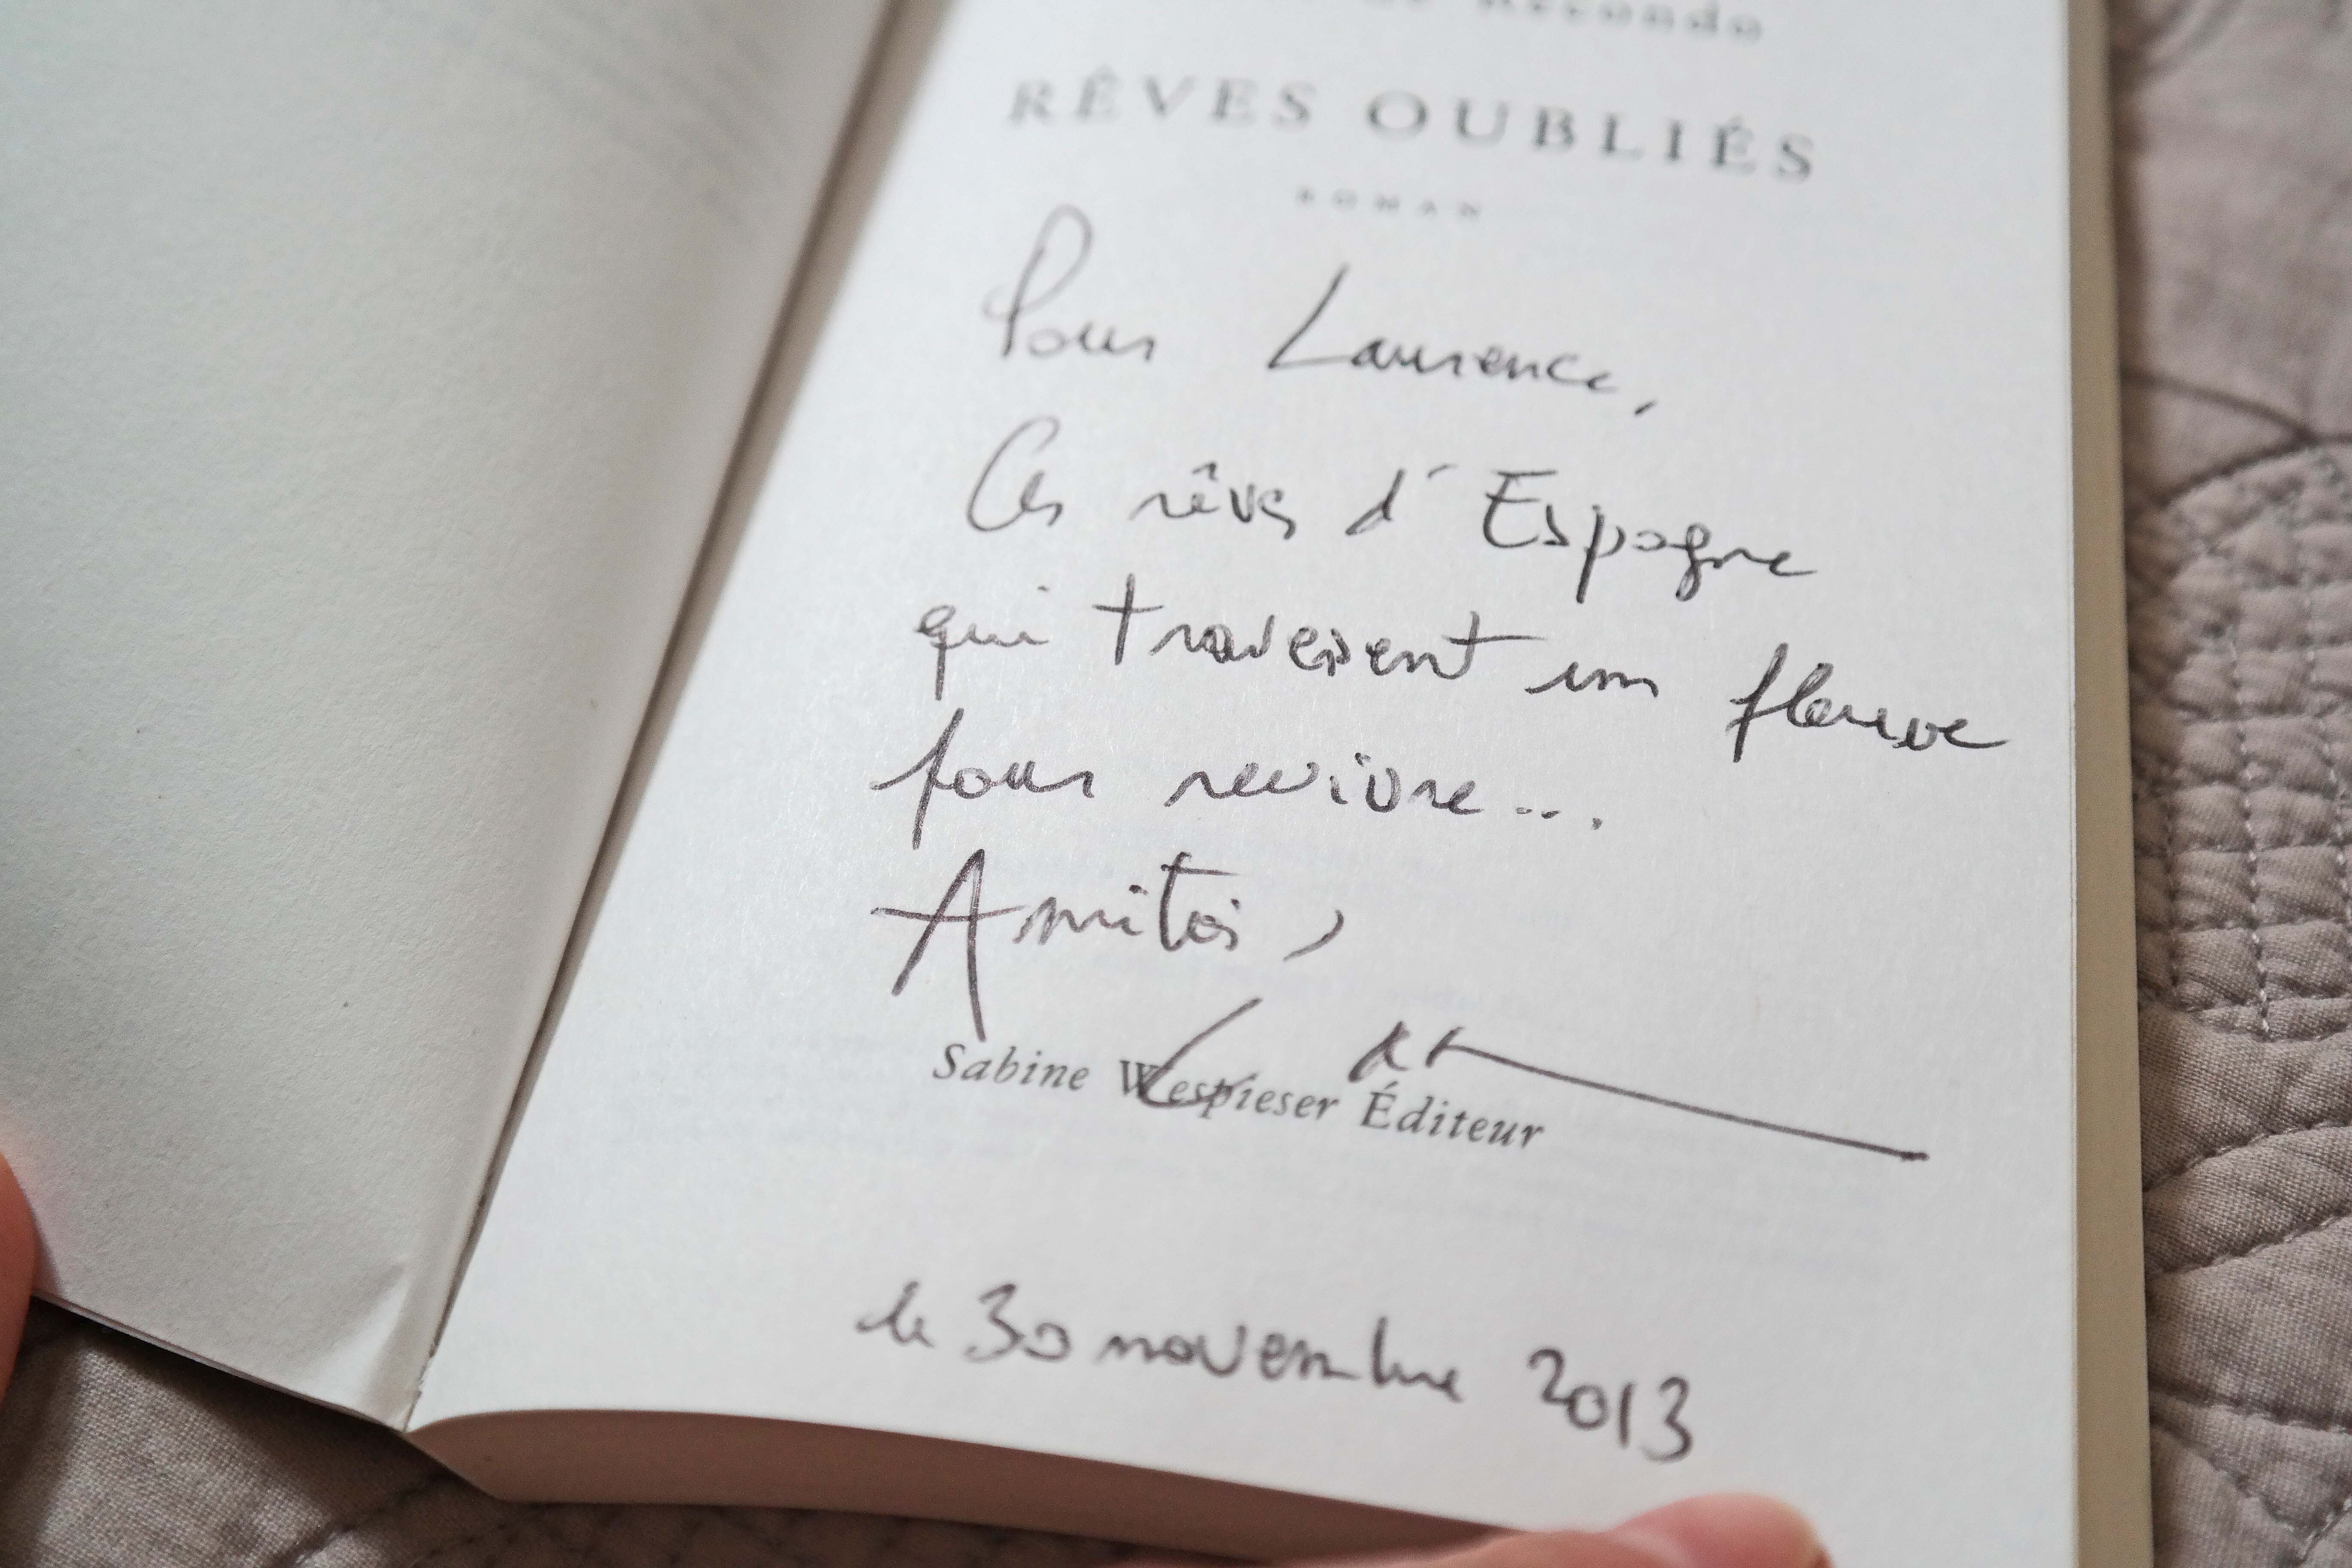 de Récondo
RÊVES OUBLIÉS
ROMAN
Pour Laurence,
Ces rêves d'Espagne
qui traversent un fleuve
pour revivre...
Amitiés,
Sabine Wespieser Éditeur
le 30 novembre 2013